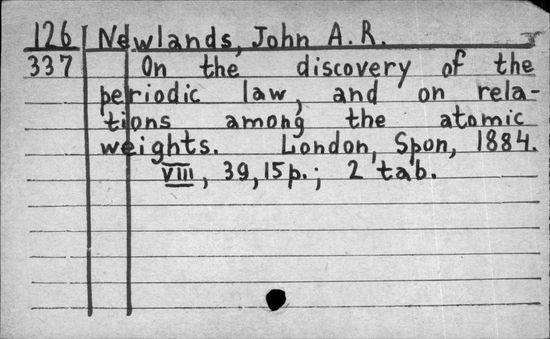 126 Newlands, John A. R.
337 On the discovery of the
periodic law, and on rela-
tions among the atomic
weights. London, Spon, 1884.
VIII, 39, 15p.; 2 tab.